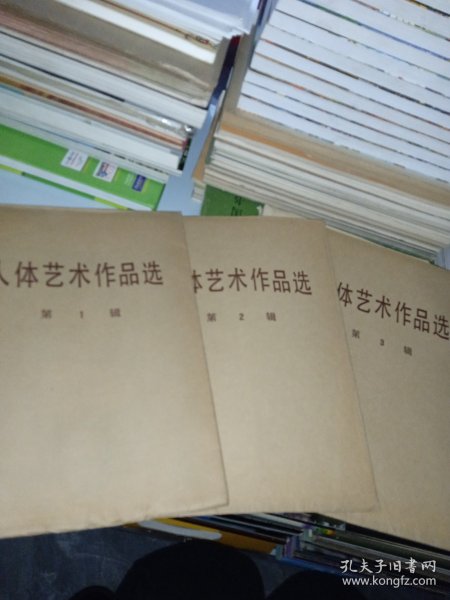 人体艺术作品选
第 1 辑
体艺术作品选
第 2 辑
体艺术作品选
第 3 辑
孔夫子旧书网
www.kongfz.com